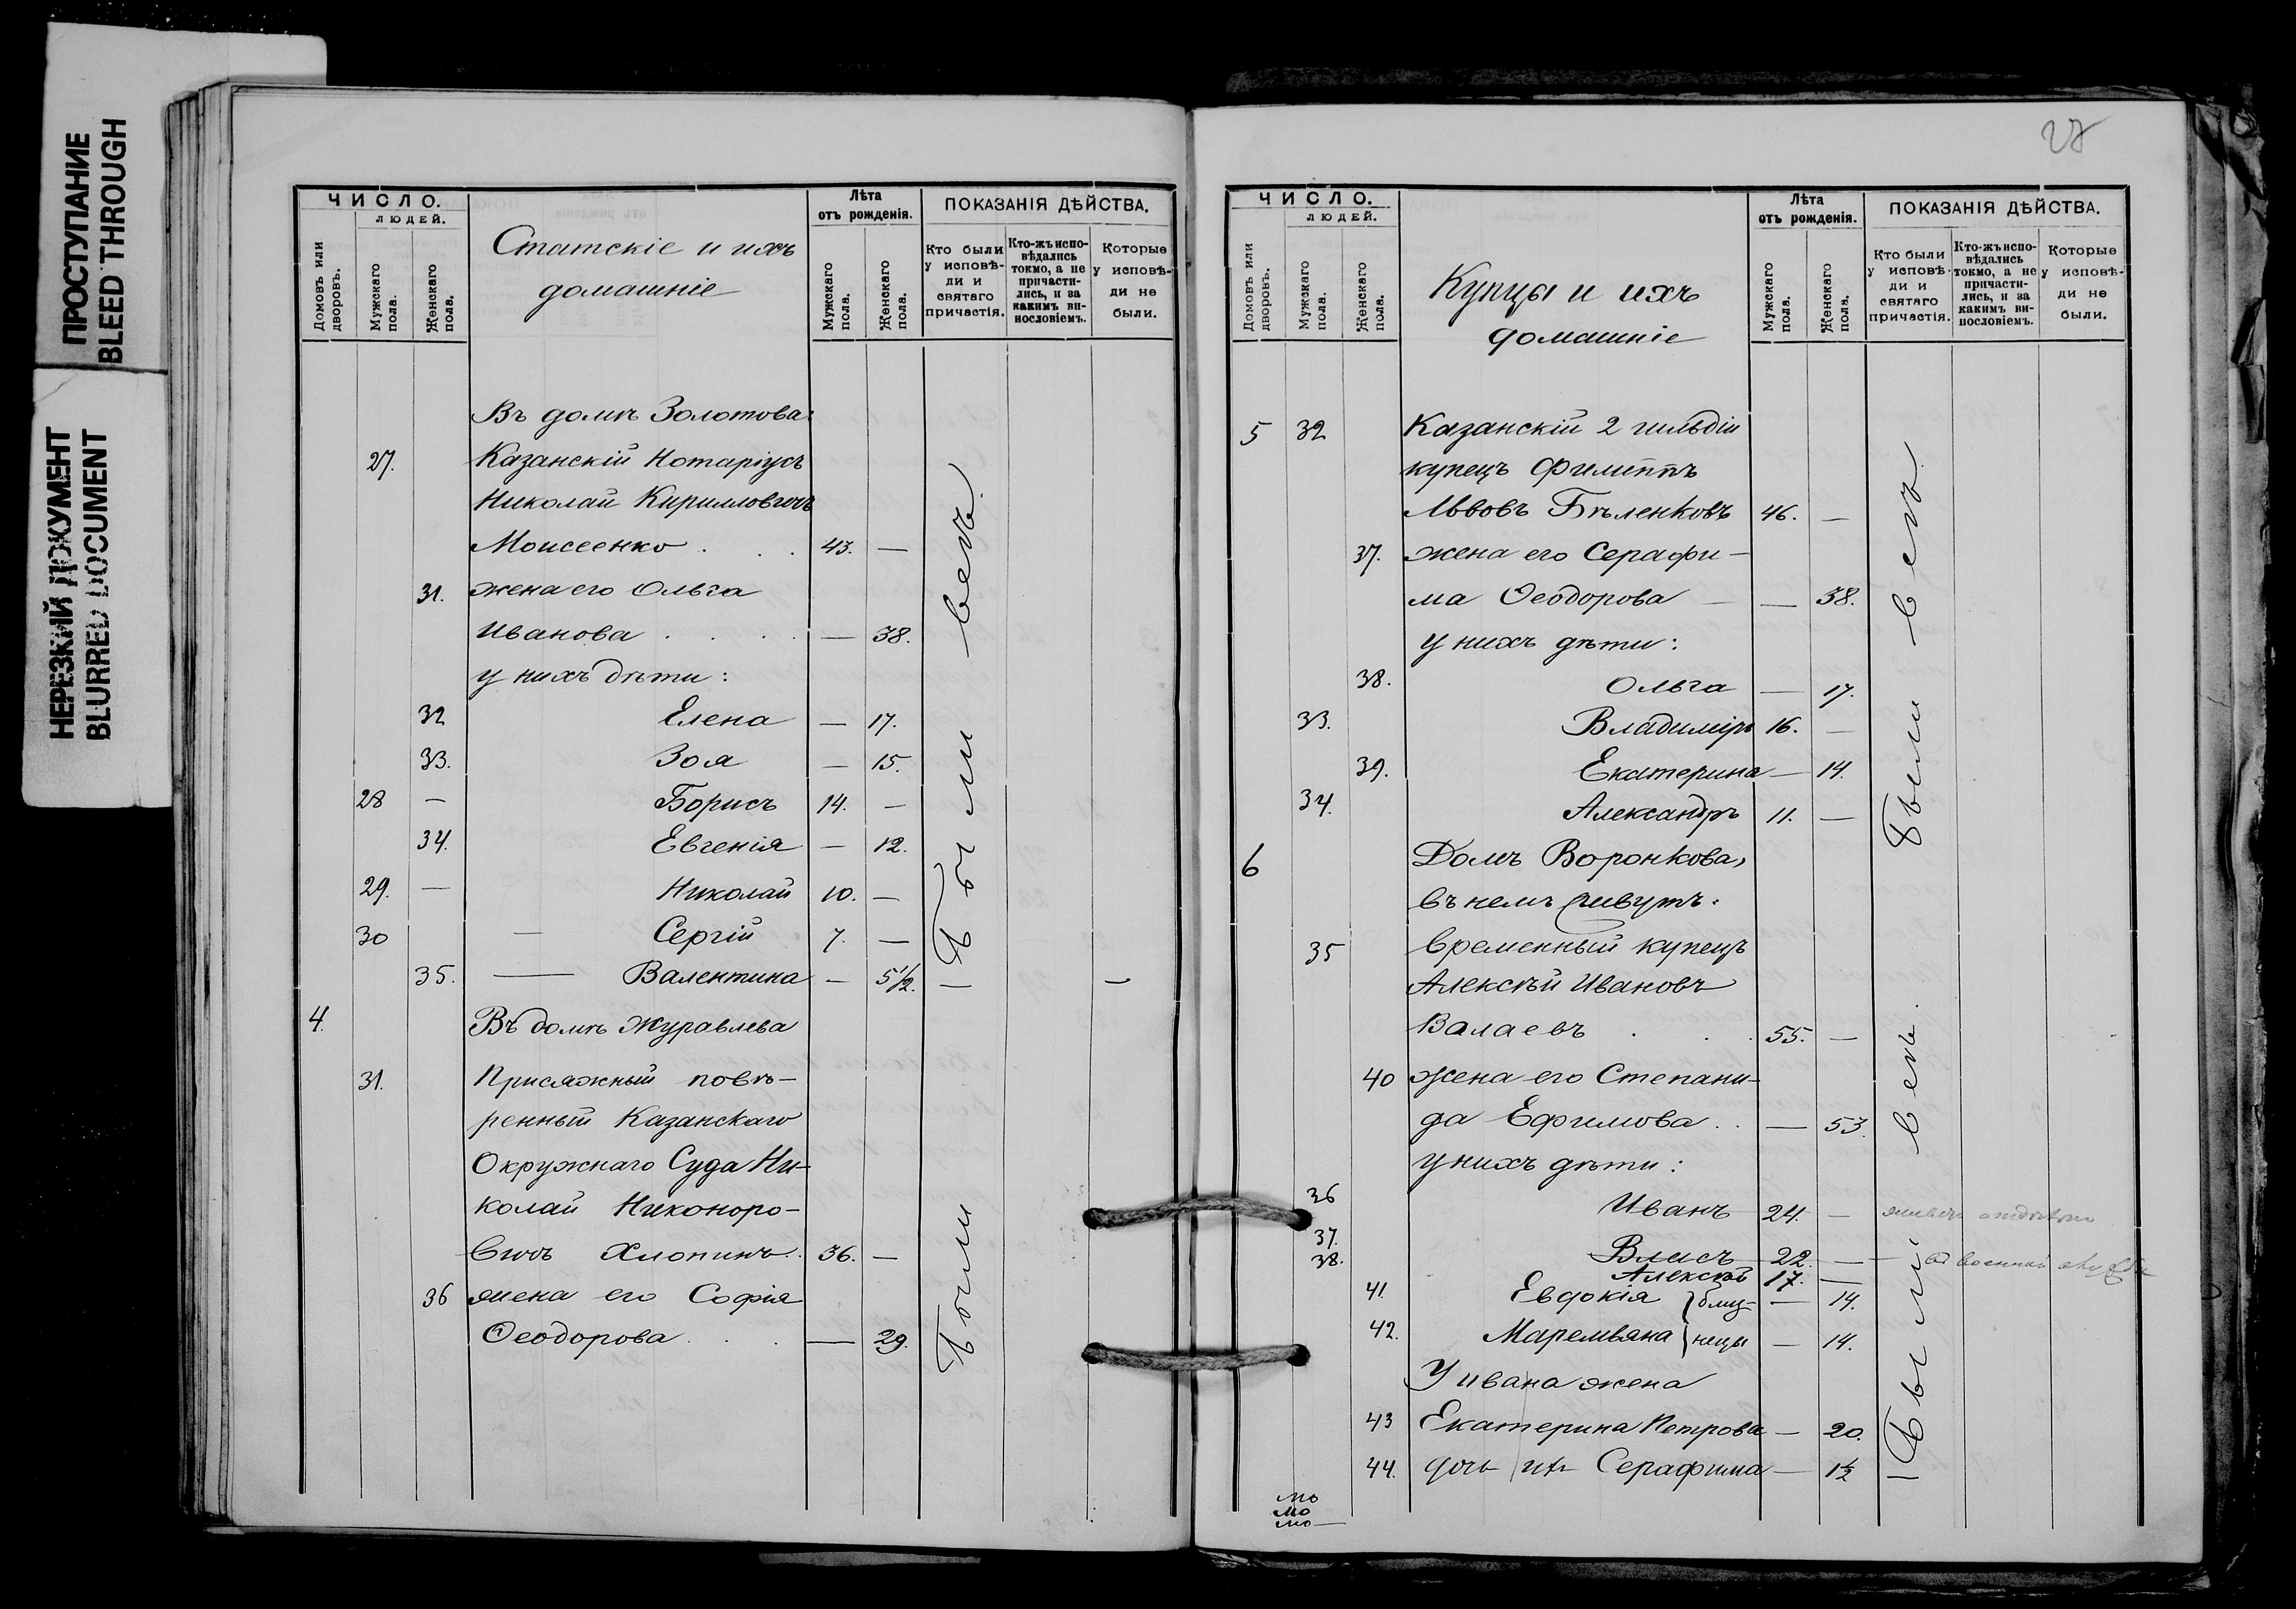 ПРОСТУПАНИЕ
BLEED THROUGH
НЕРЕЗКИЙ ДОКУМЕНТ
BLURRED DOCUMENT
ЧИСЛО.
ЛЮДЕЙ.
Домовъ или дворовъ.
Мужскаго пола.
Женскаго пола.
Статскіе и ихъ
домашніе
Лѣта
отъ рожденія.
Мужскаго пола.
Женскаго пола.
ПОКАЗАНІЯ ДѢЙСТВА.
Кто были у исповѣ-ди и святаго причастія.
Кто-жъ испо-вѣдались токмо, а не причасти-лись, и за какимъ ви-нословіемъ.
Которые у исповѣ-ди не были.
Въ домѣ Золотова:
27. Казанскій Нотаріусъ
Николай Кирилловичъ
Моисеенко . . . 43. —
31. жена его Ольга
Иванова . . . . — 38.
у нихъ дѣти:
32 Елена — 17.
33. Зоя — 15.
28 — Борисъ 14. —
34. Евгенія — 12.
29. — Николай 10. —
30 — Сергій 7. —
35. — Валентина — 5 1/2. — —
Были всѣ.
4. Въ домѣ Журавлева
31. Присяжный повѣ-
ренный Казанскаго
Окружнаго Суда Ни-
колай Никоноро-
вичъ Хлопинъ . 36. —
36 жена его Софія
Ѳеодорова . . . — 29.
Были
ЧИСЛО.
ЛЮДЕЙ.
Домовъ или дворовъ.
Мужскаго пола.
Женскаго пола.
Купцы и ихъ
домашніе
Лѣта
отъ рожденія.
Мужскаго пола.
Женскаго пола.
ПОКАЗАНІЯ ДѢЙСТВА.
Кто были у исповѣ-ди и святаго причастія.
Кто-жъ испо-вѣдались токмо, а не причасти-лись, и за какимъ ви-нословіемъ.
Которые у исповѣ-ди не были.
5 32 Казанскій 2 гильдіи
купецъ Филиппъ
Львовъ Бѣленковъ 46. —
37. жена его Серафи-
ма Ѳеодорова — — 38.
у нихъ дѣти:
38. Ольга — 17.
33. Владиміръ 16. —
39. Екатерина — 14.
34. Александръ 11. —
Были всѣ
6 Домъ Воронкова,
въ немъ живутъ:
35 Временный купецъ
Алексѣй Ивановъ
Валаевъ . . . 55. —
40 жена его Степани-
да Ефимова . . — 53.
у нихъ дѣти:
36 Иванъ 24. —
37. Власъ 22. — въ военной службе
38. Алексѣй 17. —
41. Евдокія } близ- — 14.
42. Маремьяна } нецы — 14.
У ивана жена
43 Екатерина Петрова — 20.
44. дочь их Серафима — 1 1/2
Были всѣ.